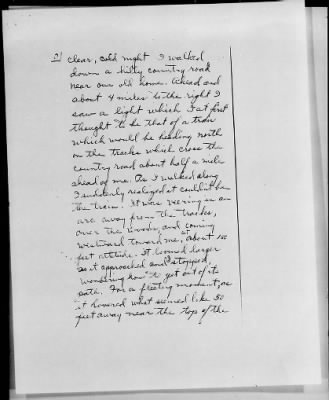 2/ clear, cold night I walked
down a hilly country road
near our old home. Ahead and
about 4 miles to the right I
saw a light which I at first
thought to be that of a train
which would be heading north
on the tracks which cross the
country road about half a mile
ahead of me. As I walked along
I suddenly realized it couldn't be
the train. It was veering in an
arc away from the tracks,
over the woods, and coming
westward toward me, at about 100
feet altitude. It loomed larger
as it approached and I stopped,
wondering how to get out of its
path. For a fleeting moment, as
it hovered what seemed like 50
feet away near the top of the